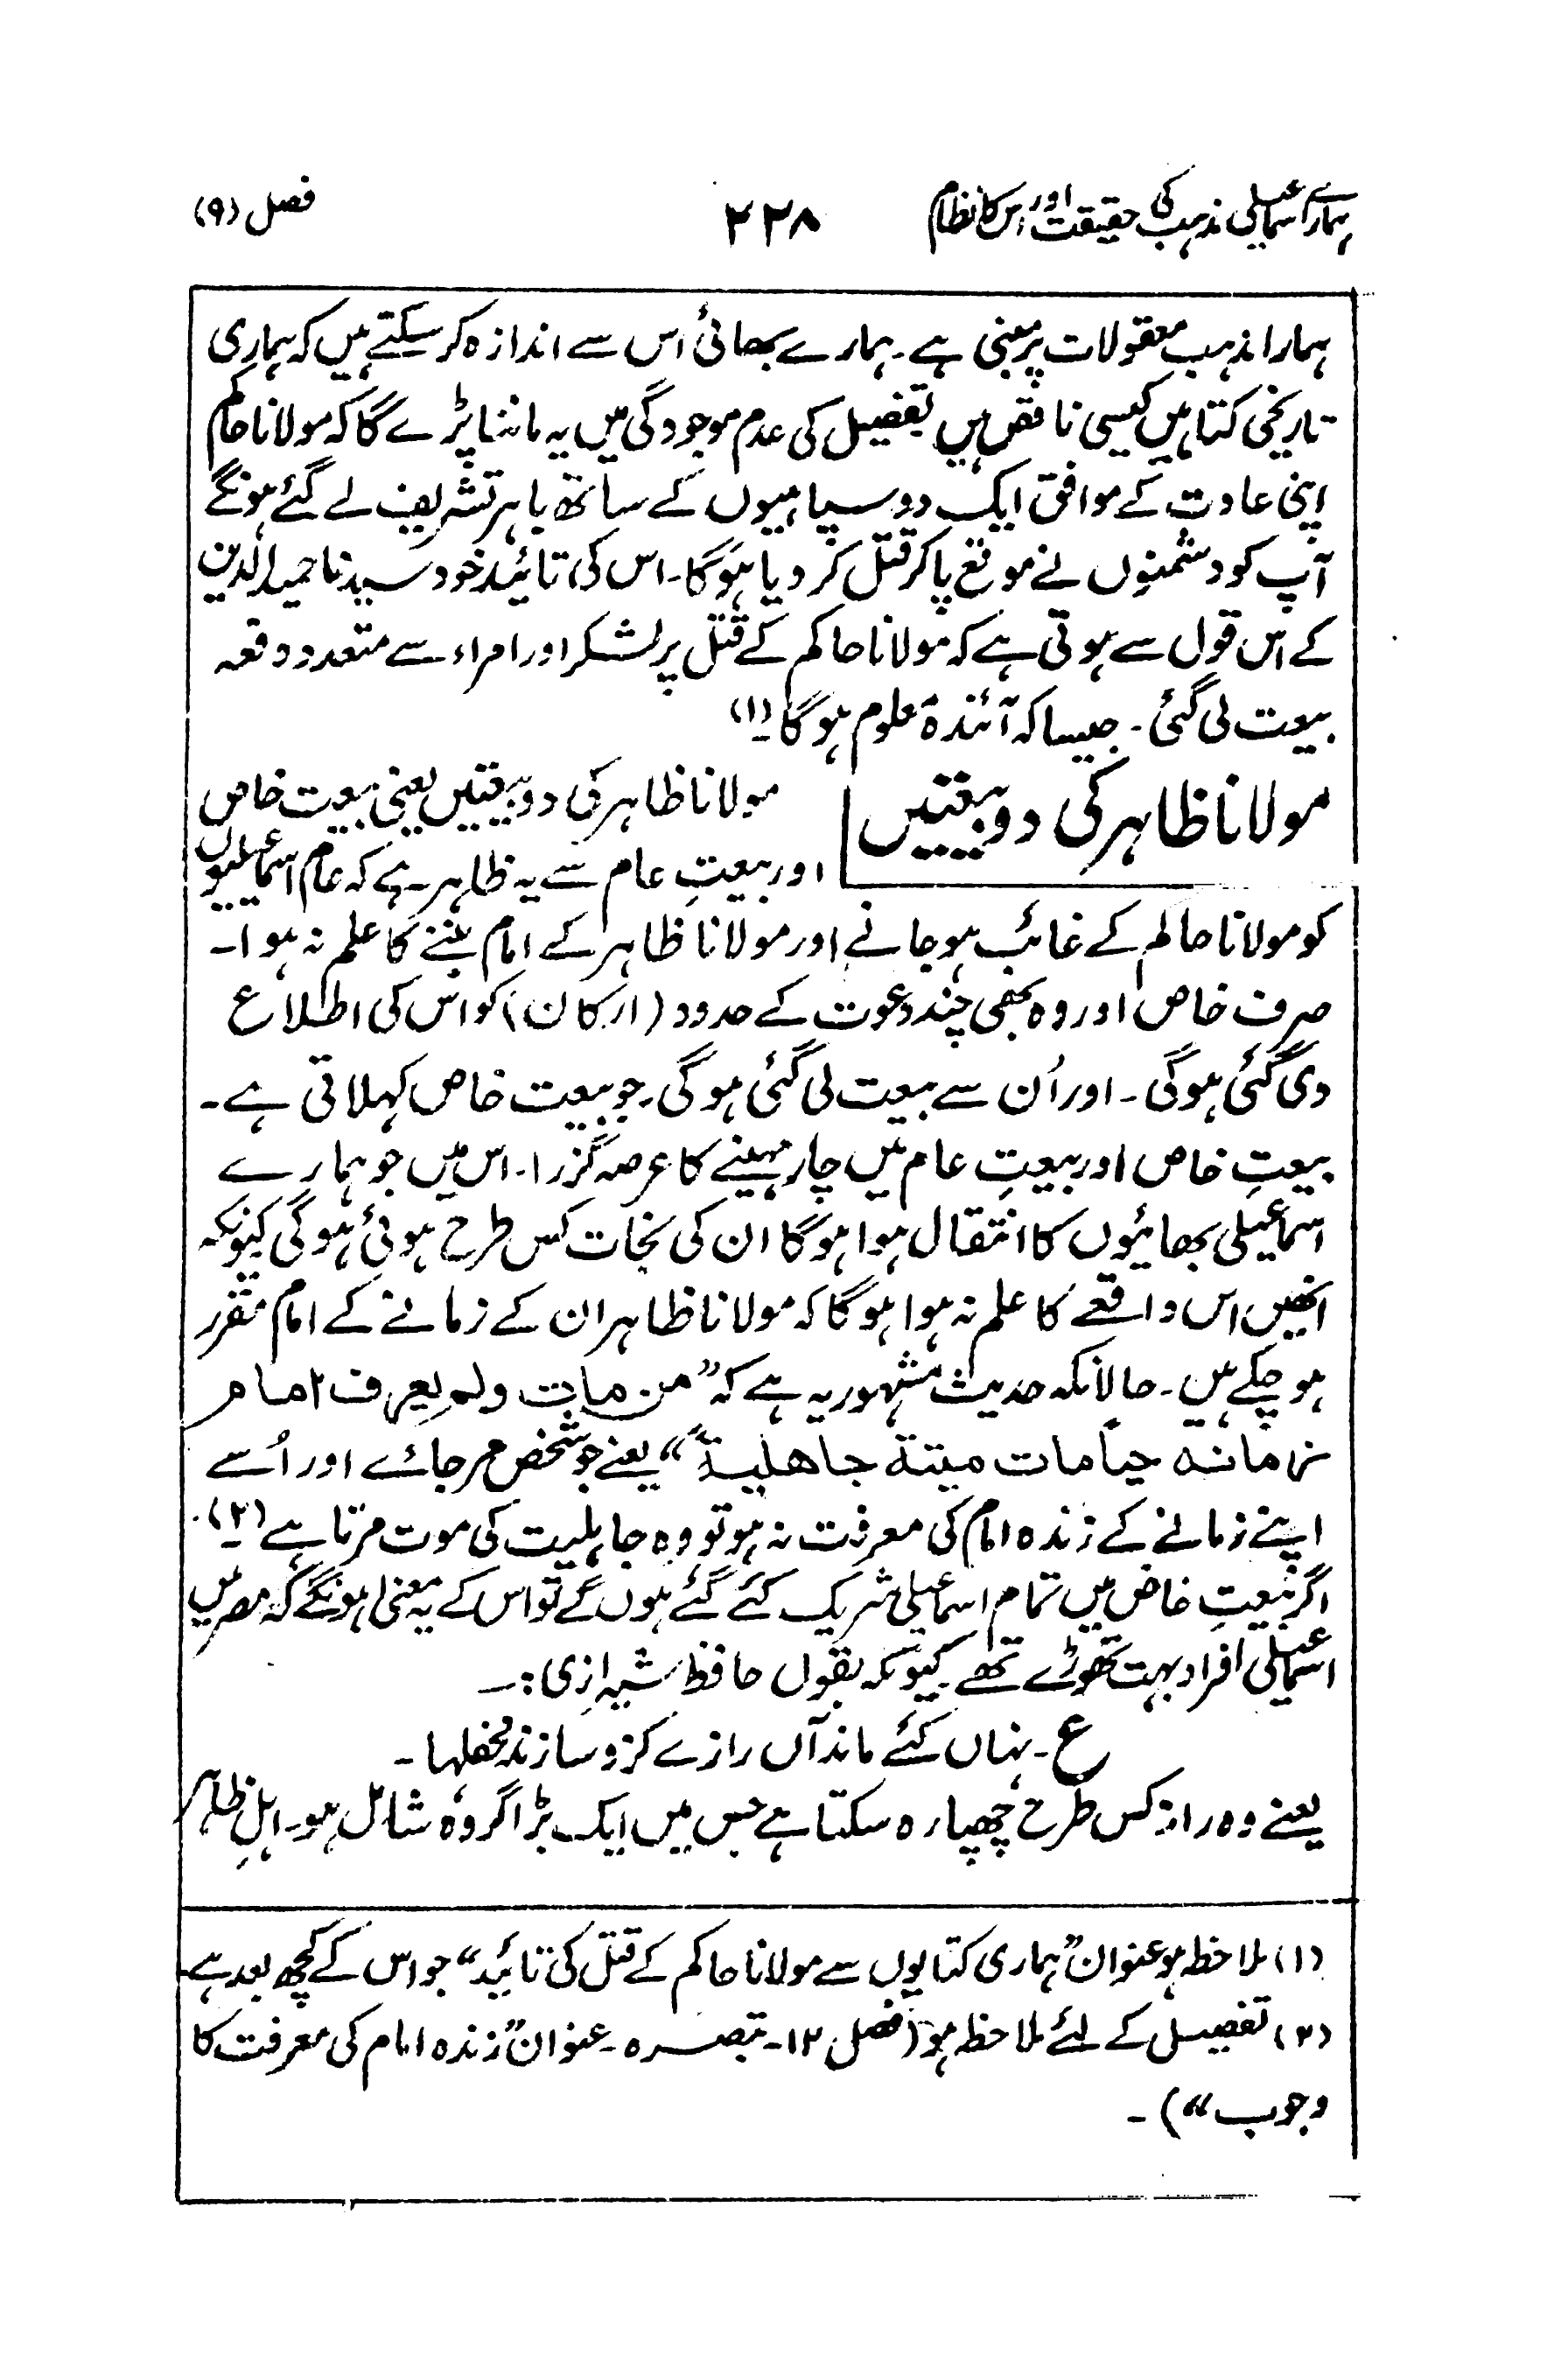 ہمارے اسماعیلی مذہب کی حقیقت اور اس کا نظام ۲۲۸ فصل (۹)
ہمارا مذہب معقولات پر مبنی ہے۔ ہمارے بھائی اس سے اندازہ کر سکتے ہیں کہ ہماری
تاریخی کتابیں کیسی ناقص ہیں تفصیل کی عدم موجودگی میں یہ ماننا پڑے گا کہ مولانا حاکم
اپنی عادت کے موافق ایک دو سپاہیوں کے ساتھ باہر تشریف لے گئے ہونگے
آپ کو دشمنوں نے موقع پا کر قتل کر دیا ہوگا۔ اس کی تائید خود سیدنا حمید الدین
کے اس قول سے ہوتی ہے کہ مولانا حاکم کے قتل پر لشکر اور امراء سے متعدد دفعہ
بیعت لی گئی۔ جیسا کہ آئندہ معلوم ہوگا۔(۱)
مولانا ظاہر کی دو بیعتیں
مولانا ظاہر کی دو بیعتیں یعنی بیعت خاص
اور بیعتِ عام سے یہ ظاہر ہے کہ عام اسماعیلیوں
کو مولانا حاکم کے غائب ہو جانے اور مولانا ظاہر کے امام بننے کا علم نہ ہوا۔
صرف خاص اور وہ بھی چند دعوت کے حدود (ارکان) کو اس کی اطلاع
دی گئی ہوگی۔ اور اُن سے بیعت لی گئی ہوگی۔ جو بیعت خاص کہلاتی ہے۔
بیعتِ خاص اور بیعتِ عام میں چار مہینے کا عرصہ گزرا۔ اس میں جو ہمارے
اسماعیلی بھائیوں کا انتقال ہوا ہوگا ان کی نجات کس طرح ہوئی ہوگی کیونکہ
انھیں اس واقعے کا علم نہ ہوا ہوگا کہ مولانا ظاہر ان کے زمانے کے امام مقرر
ہو چکے ہیں۔ حالانکہ حدیث مشہور یہ ہے کہ ”من مات ولم يعرف امام
زمانه حياً مات ميتة جاهلية“ یعنے جو شخص مر جائے اور اُسے
اپنے زمانے کے زندہ امام کی معرفت نہ ہو تو وہ جاہلیت کی موت مرتا ہے (۲)۔
اگر بیعتِ خاص میں تمام اسماعیلی شریک کئے گئے ہوں گے تو اس کے یہ معنی ہونگے کہ مصر میں
اسماعیلی افراد بہت تھوڑے تھے۔ کیونکہ بقول حافظ شیرازی:۔
ع۔ نہاں کئے ماند آں رازے کزو سازند محفلہا۔
یعنے وہ راز کس طرح چھپا رہ سکتا ہے جس میں ایک بڑا گروہ شامل ہو۔ اہلِ ظاہر
(۱) ملاحظہ ہو عنوان ”ہماری کتابوں سے مولانا حاکم کے قتل کی تائید“ جو اس کے کچھ بعد ہے
(۲) تفصیل کے لئے ملاحظہ ہو (فصل ۱۲۔ تبصرہ۔ عنوان ”زندہ امام کی معرفت کا
وجوب“)۔